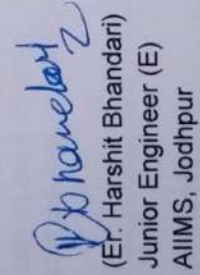 Bhandari
(Er. Harshit Bhandari)
Junior Engineer (E)
AIIMS, Jodhpur